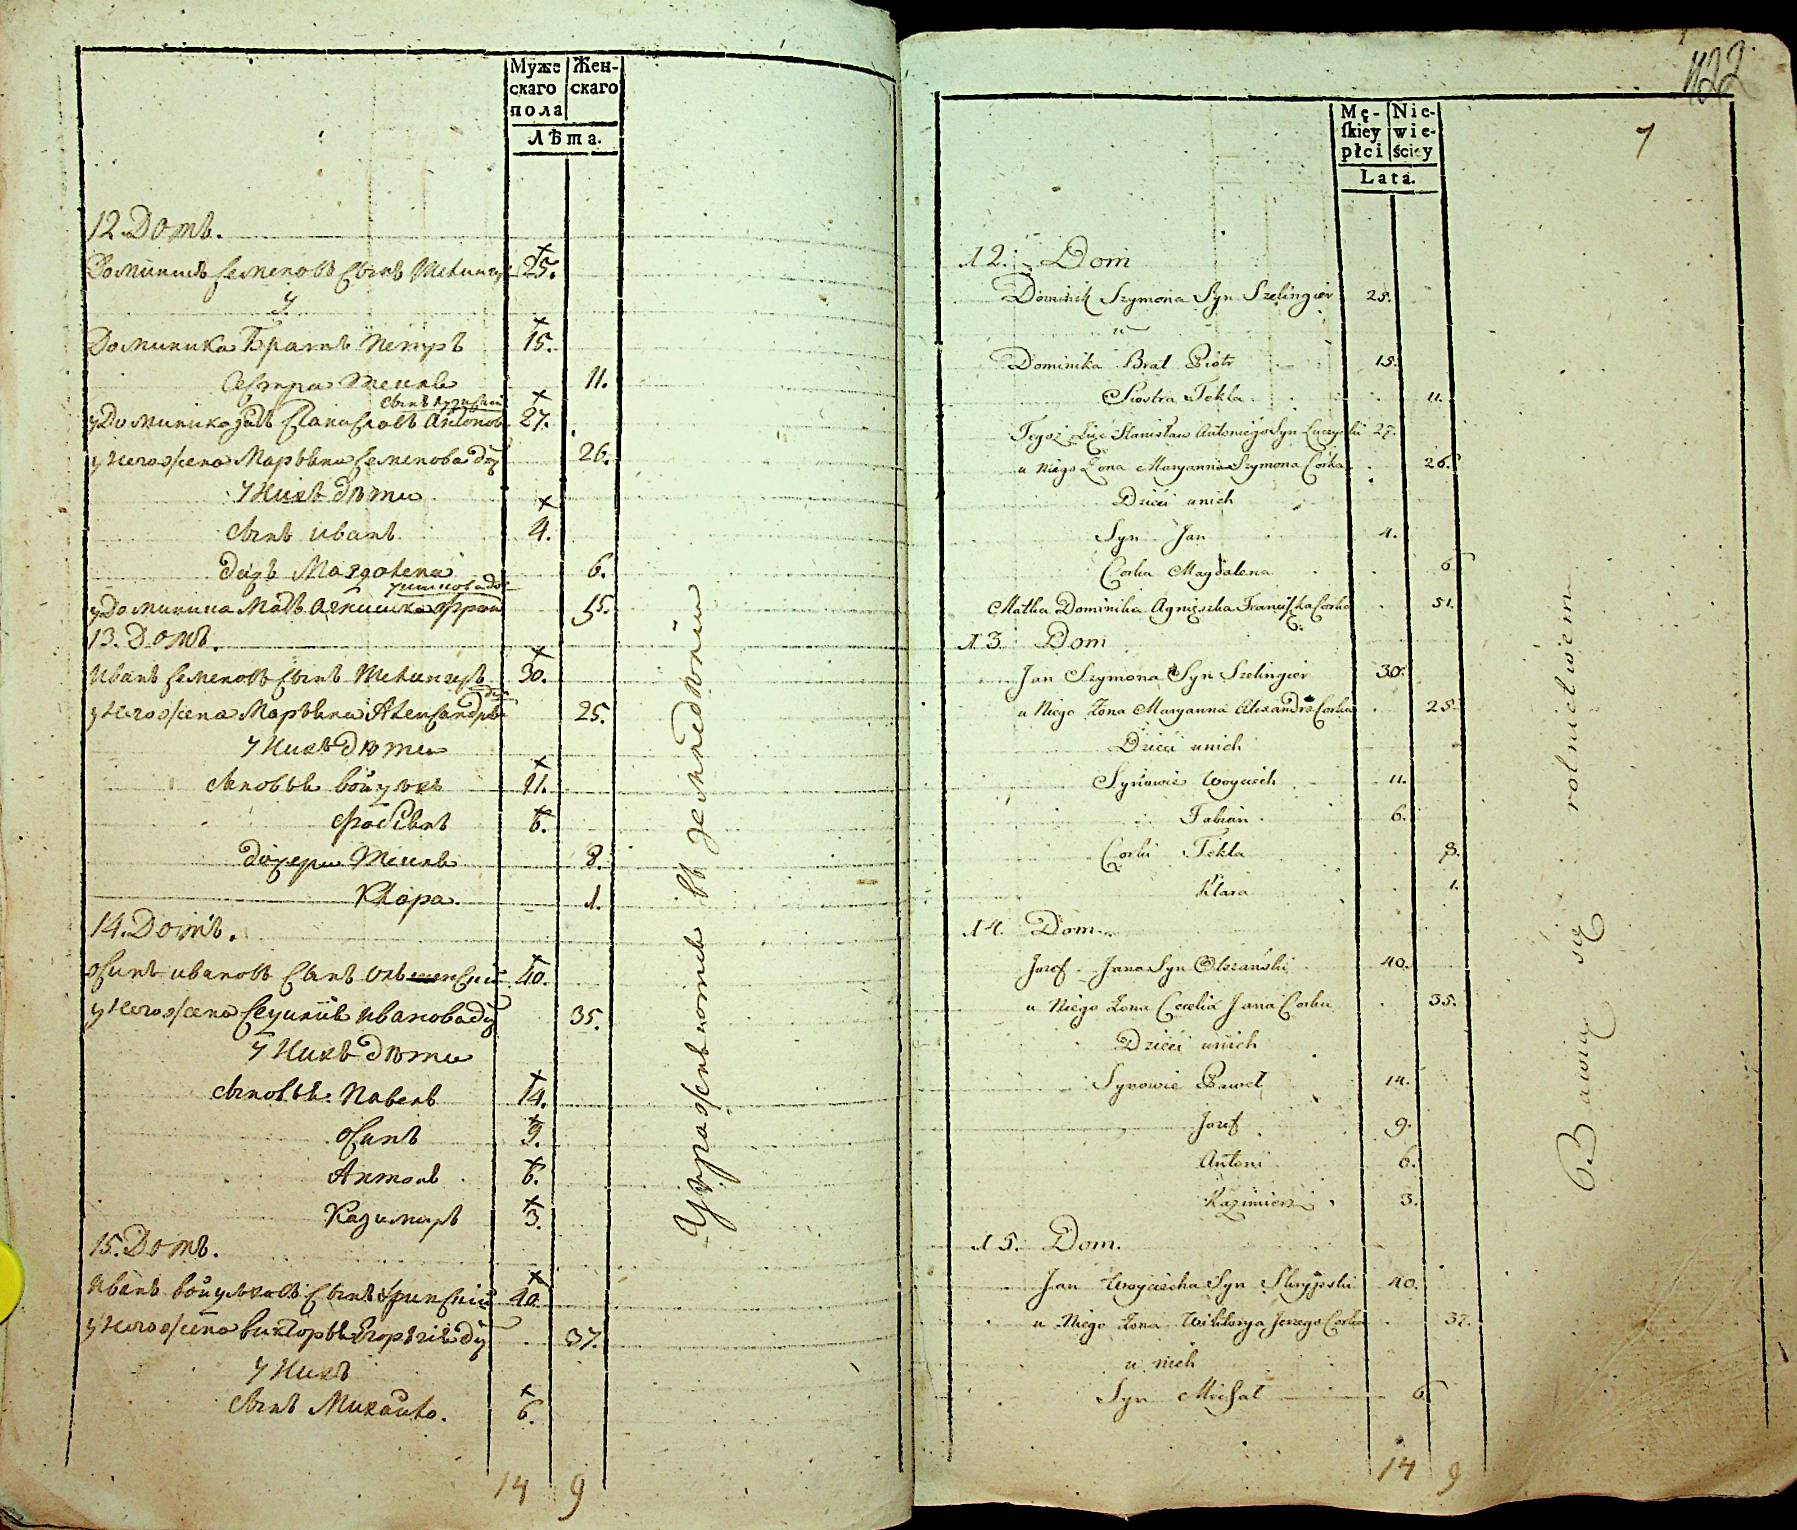 Муже
скаго
пола
Жен-
скаго
Лѣта.
12. Домъ.
Доминикъ Семеновъ Сынъ Шелингеръ 25.
у
Доминика Братъ Петръ 15.
Сестра Текля 11.
у Доминика зять Станиславъ Антоновъ 27.
у Него Жена Марьяна Семенова доч 26.
У Нихъ дѣти
сынъ Иванъ 4.
дочь Магдалена 6.
у Доминика Мать Агнишка Фран 51.
13. Домъ.
Иванъ Семеновъ Сынъ Шелингеръ 30.
у Него Жена Марьяна Александрова доч 25.
У Нихъ дѣти
сыновья Войцѣхъ 11.
Фабіянъ 6.
дочери Текля 8.
Клара. 1.
14. Домъ.
Осипъ Ивановъ Сынъ 40.
у Него Жена Сецилія Иванова доч 35.
У Нихъ дѣти
сыновья Павелъ 14.
Осипъ 9.
Антонъ 6.
Казимиръ 3.
15. Домъ.
Иванъ Войцѣховъ Сынъ 40
у Него Жена Викторья доч 37.
У Нихъ
сынъ Михайло. 6.
14 9
Упражняются въ земледѣліи
422
7
Mę-
skiey
płci
Nie-
wie-
ściey
Lata.
12. Dom
Dominik Szymona Syn Szelingier 25.
u
Dominika Brat Piotr 15.
Siostra Tekla. 11.
Tegoż Zięć Stanisław Antoniego Syn 27.
u Niego Żona Maryanna Szymona Corka 26.
Dzieci u nich
Syn Jan 4.
Corka Magdalena 6
Matka Dominika Agnieszka Franciszka Corka 51.
13 Dom
Jan Szymona Syn Szelingier 30.
u Niego Żona Maryanna Alexandra Corka 25.
Dzieci u nich
Synowie Woyciech 11.
Fabian. 6.
Corki Tekla 8.
Klara 1.
14. Dom.
Jozef Jana Syn Olszański 40.
u Niego Żona Cecelia Jana Corka 35.
Dzieci u nich
Synowie Paweł 14.
Jozef 9.
Antoni 6.
Kazimierz 3.
15. Dom.
Jan Woyciecha Syn 40.
u Niego Żona Wiktorya Jerzego Corka 37.
u nich
Syn Michał 6
14 9
Bawią się rolnictwiem